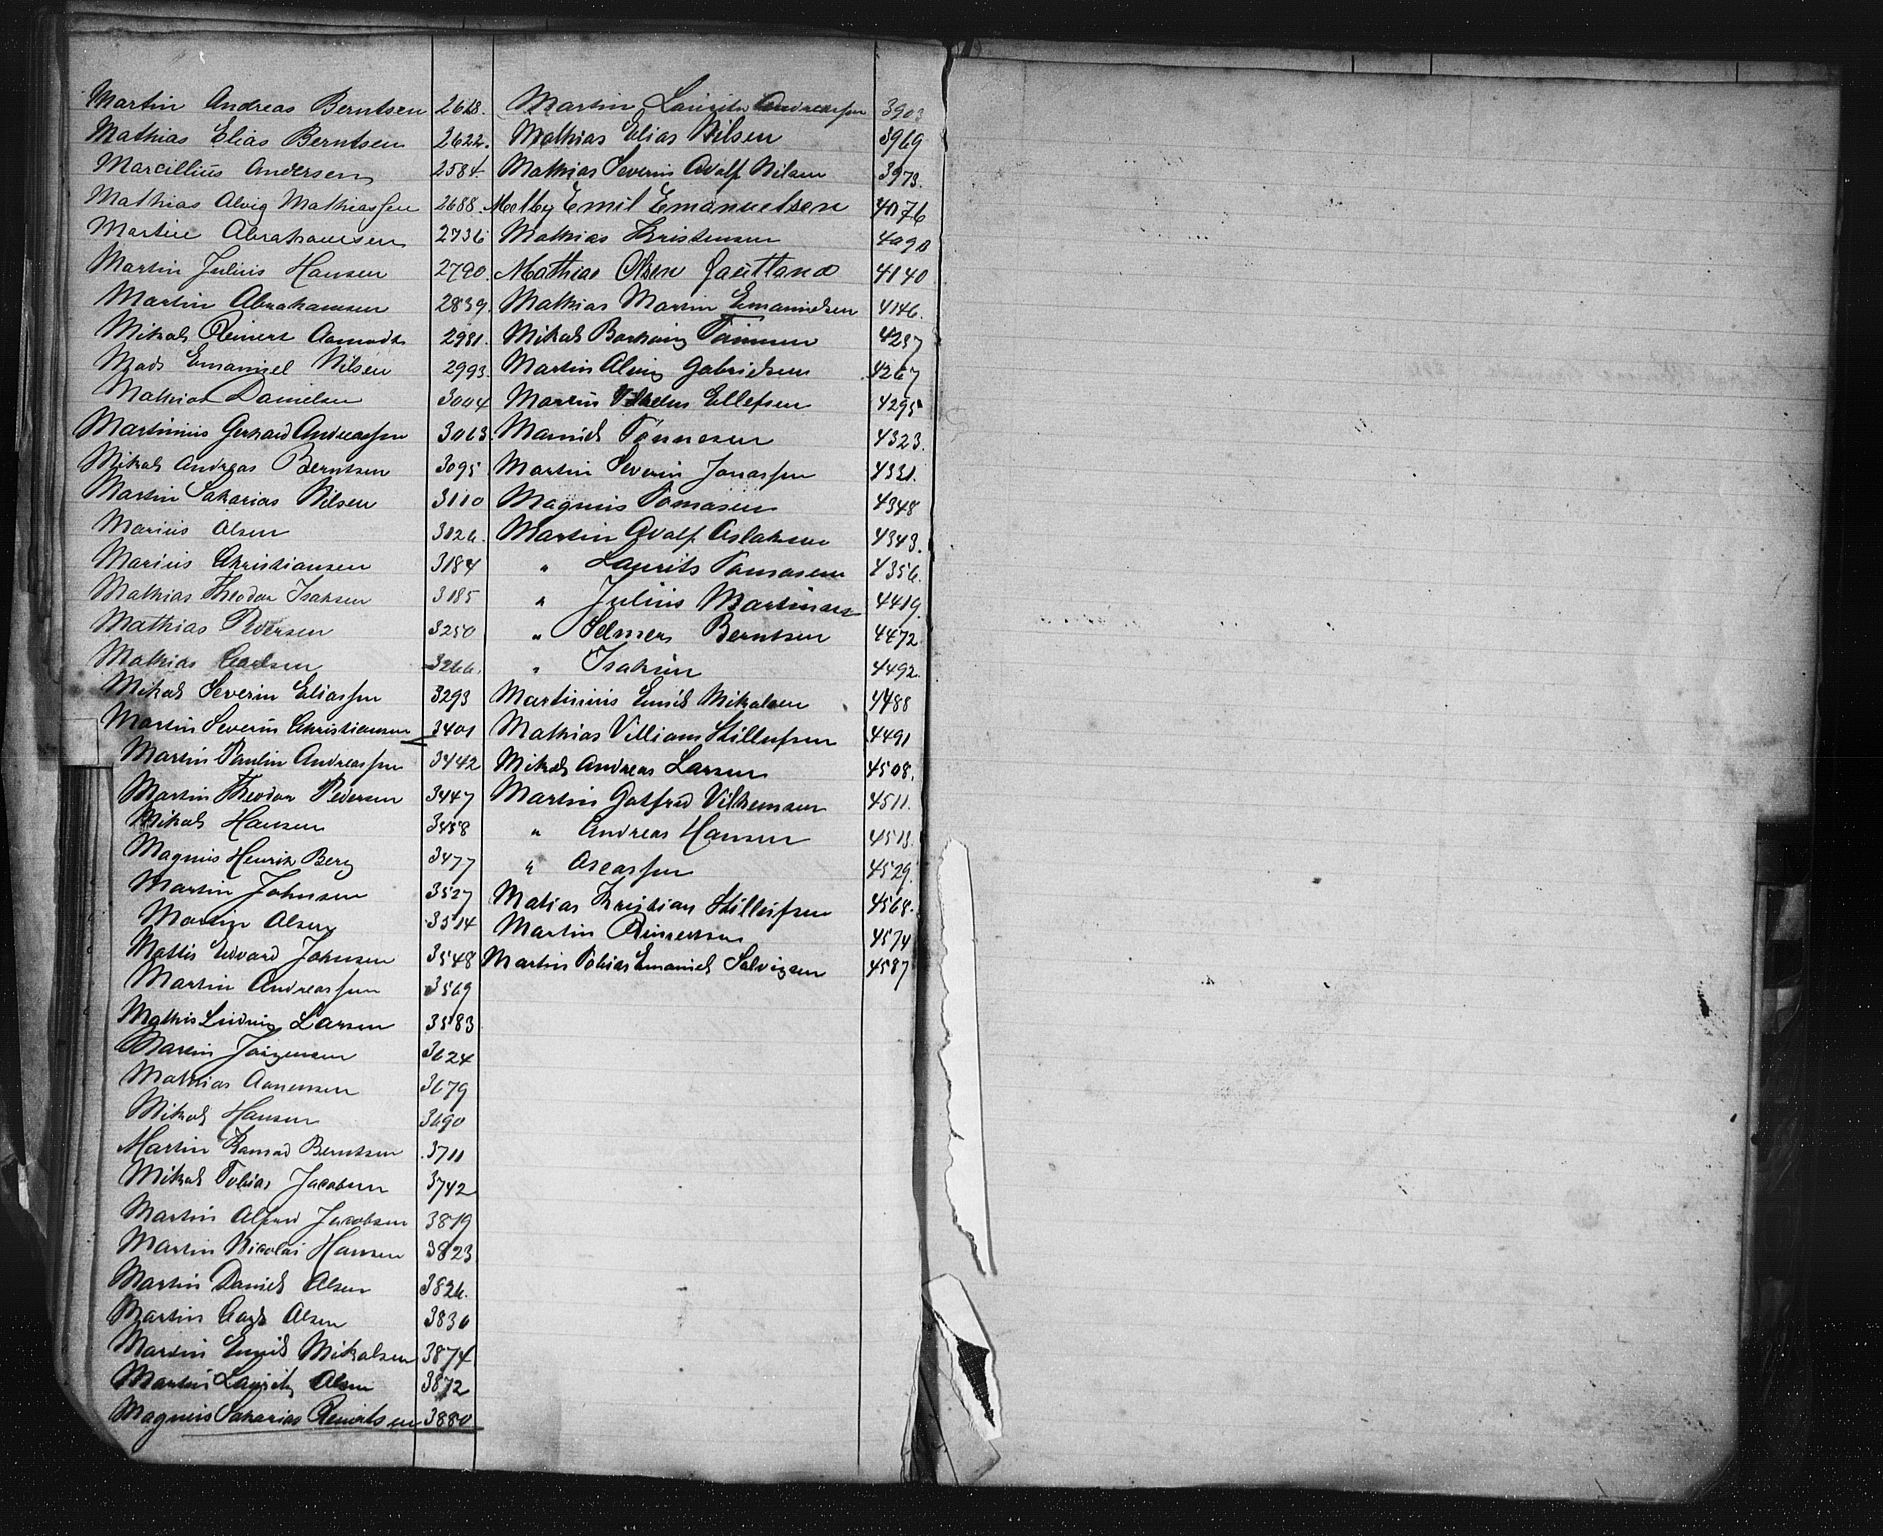 Martin Andreas Berntsen 2628.
Mathias Elias Berntsen 2622.
Marcillius Andersen 2584.
Mathias Alvig Mathiassen 2688.
Martin Abrahamsen 2736
Martin Julius Hansen 2790.
Martin Abrahamsen 2839.
Mikal Reinert Aamodt 2981.
Mads Emanuel Nilsen 2993.
Mathias Danielsen 3004
Martinius Gerhard Andreassen 3063.
Mikal Andreas Berntsen 3095
Martin Sakarias Nilsen 3110
Marius Olsen 3026.
Marius Christiansen 3184
Mathias Theodor Isaksen 3185
Mathias Pedersen 3250
Mathias Carlsen 3266.
Mikal Severin Eliassen 3293
Martin Severin Christiansen 3401
Martin Paulin Andreassen 3442
Martin Theodor Pedersen 3447
Mikal Hansen 3458
Magnus Henrik Berg 3477
Martin Johnsen 3527
Martin Olsen 3514
Mattis Edvard Johnsen 3548
Martin Andreassen 3569
Mathis Ludvig Larsen 3583
Martin Jörgensen 3624
Mathias Aanensen 3679
Mikal Hansen 3690
Martin Konrad Berntsen 3711
Mikal Tobias Jacobsen 3742
Martin Alfred Jacobsen 3819
Martin Nicolai Hansen 3823
Martin Daniel Olsen 3826.
Martin Carl Olsen 3830
Martin Emil Mikalsen 3874
Martin Lauritz Olsen 3872
Magnus Sakarias Reinertsen 3880
Martin Lauritz Andreassen 3903
Mathias Elias Nilsen 3969
Mathias Severin Adolf Nilsen 3973.
Emil Emanuelsen 4076
Mathias Kristensen 4090
Mathias Olsen 4140
Mathias Martin Emanuelsen 4146.
Mikal Tönnesen 4237
Martin Alvig Gabrielsen 4267
Martin Ellefsen 4295
Daniel Tönnesen 4323.
Martin Severin Jonassen 4331.
Magnus Tomasen 4348
Martin Adolf Aslaksen 4343.
" Laurits Tomasen 4356.
" Julius Martinsen 4419.
" Selmer Berntsen 4472
" Isaksen 4492.
Martinius Emil Mikalsen 4488
Mathias Villiam Stillufsen 4491
Mikal Andreas Larsen 4508.
Martin Gotfred Vilhemsen 4511.
" Andreas Hansen 4513.
" Oscarssen 4529.
Matias Kristian Stillufsen 4568.
Martin Reinertsen 4574
Martin Tobias Emanuel Salvigsen 4587